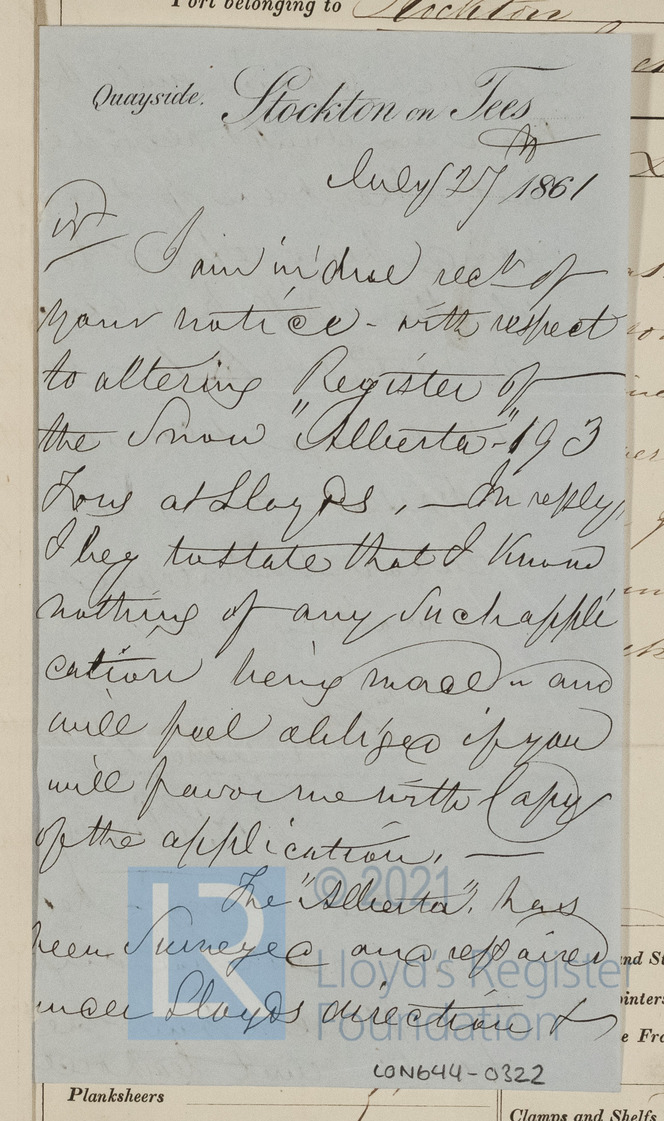 Port belonging to Stockton
Quayside. Stockton on Tees
July 27th 1861
Sir
I am in due rect of
your notice - with respect
to altering Register of
the Snow "Alberta" - 193
Tons at Lloyds, - In reply,
I beg to state that I know
nothing of any such appli
cation being made - and
will feel obliged if you
will favor me with Copy
of the application, -
The "Alberta", has
been Surveyed and repaired
under Lloyds direction &
LR
© 2021
Lloyd's Register
Foundation
LON644-0322
Planksheers
Clamps and Shelfs